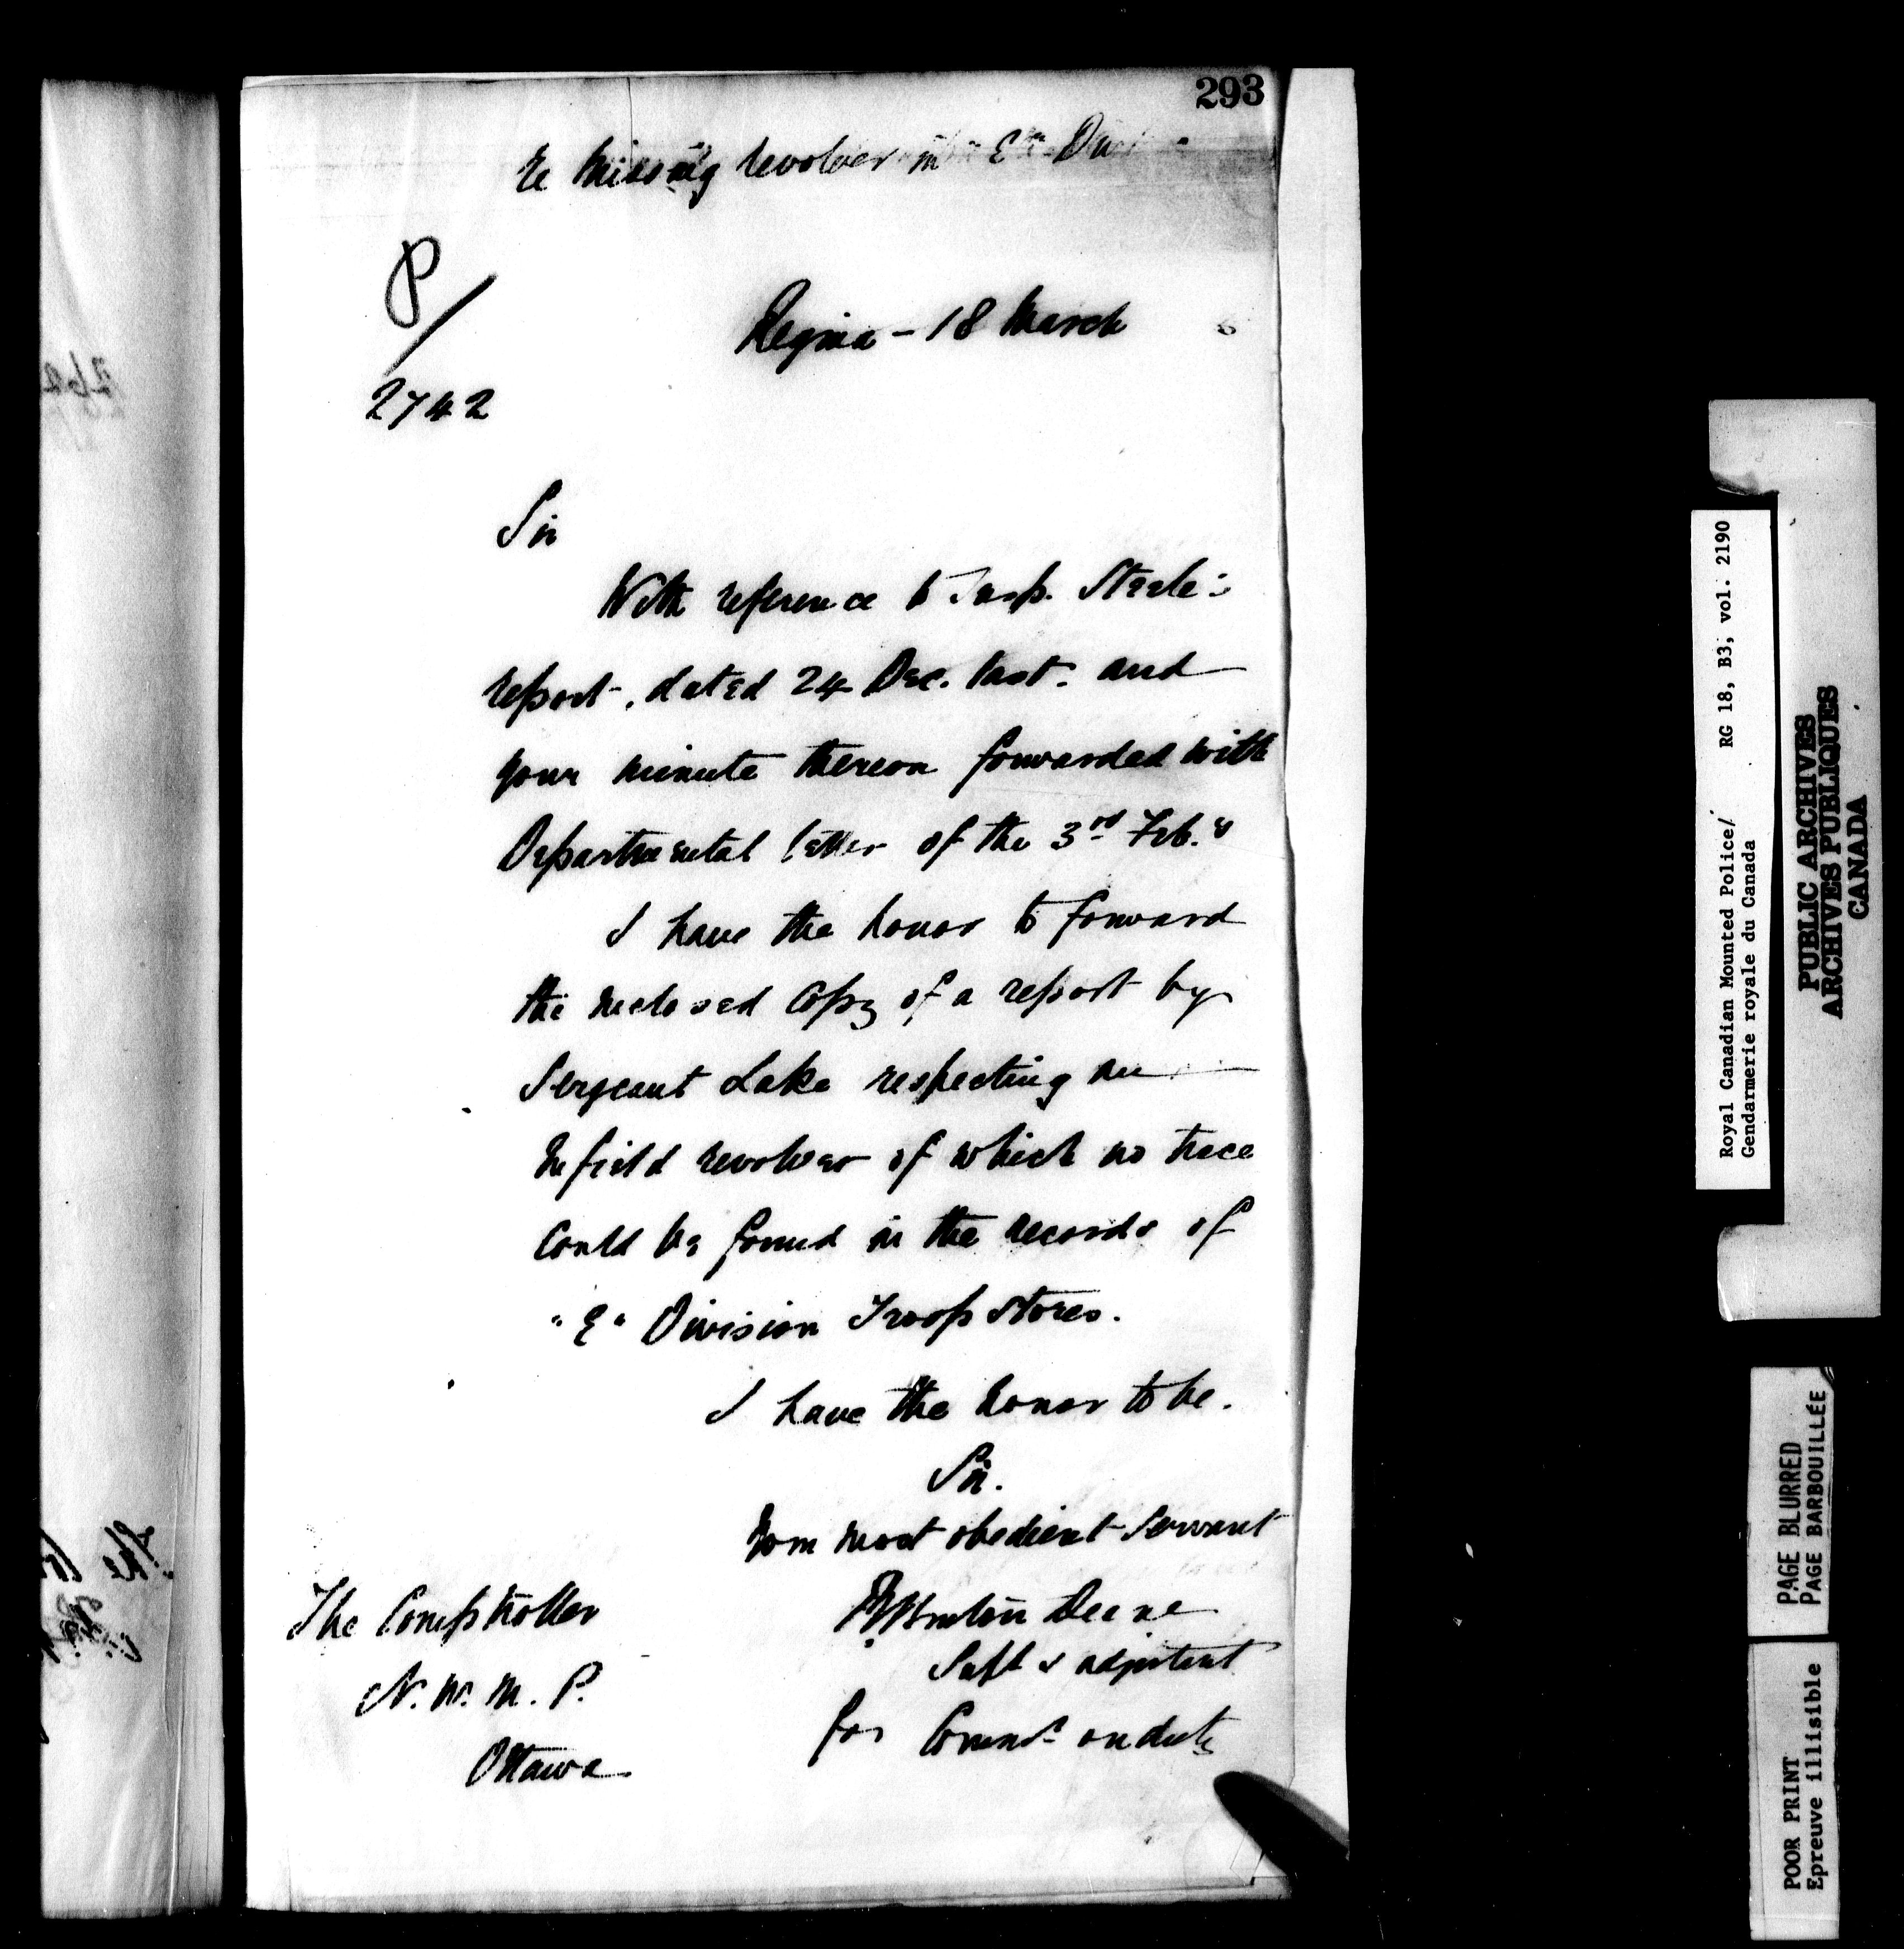 293
re missing revolver in "E" Div
P/
2742
Regina - 18 March 6
Sir
With reference to Insp. Steele's
report, dated 24 Dec. last. and
your minute thereon forwarded with
Departmental letter of the 3rd Feb.y
I have the honor to forward
the enclosed copy of a report by
Sergeant Lake respecting an
Enfield revolver of which no trace
could be found in the records of
"E" Division Troop Stores.
I have the honor to be.
Sir.
Your most obedient servant
R Burton Deane
Supt & adjutant
for Commr on duty
The Comptroller
N. W. M. P.
Ottawa
Royal Canadian Mounted Police/ RG 18, B3, vol. 2190
Gendarmerie royale du Canada
PUBLIC ARCHIVES
ARCHIVES PUBLIQUES
CANADA
PAGE BLURRED
PAGE BARBOUILLÉE
POOR PRINT
Epreuve illisible